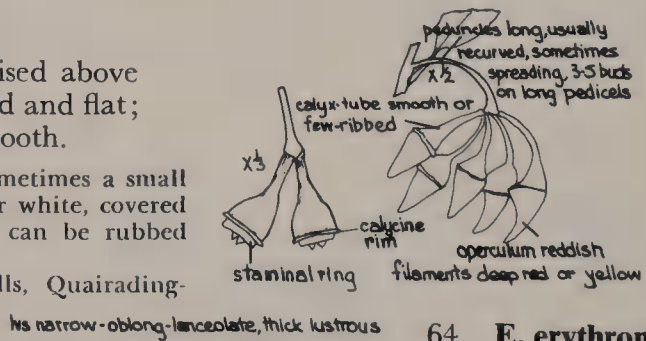 ised above
d and flat;
ooth.
metimes a small
r white, covered
can be rubbed
lls, Quairading-
peduncles long, usually
recurved, sometimes
spreading, 3-5 buds
on long pedicels
x½
calyx-tube smooth or
few-ribbed
x⅓
calycine
rim
staminal ring
operculum reddish
filaments deep red or yellow
lvs narrow-oblong-lanceolate, thick lustrous
64 E. erythron